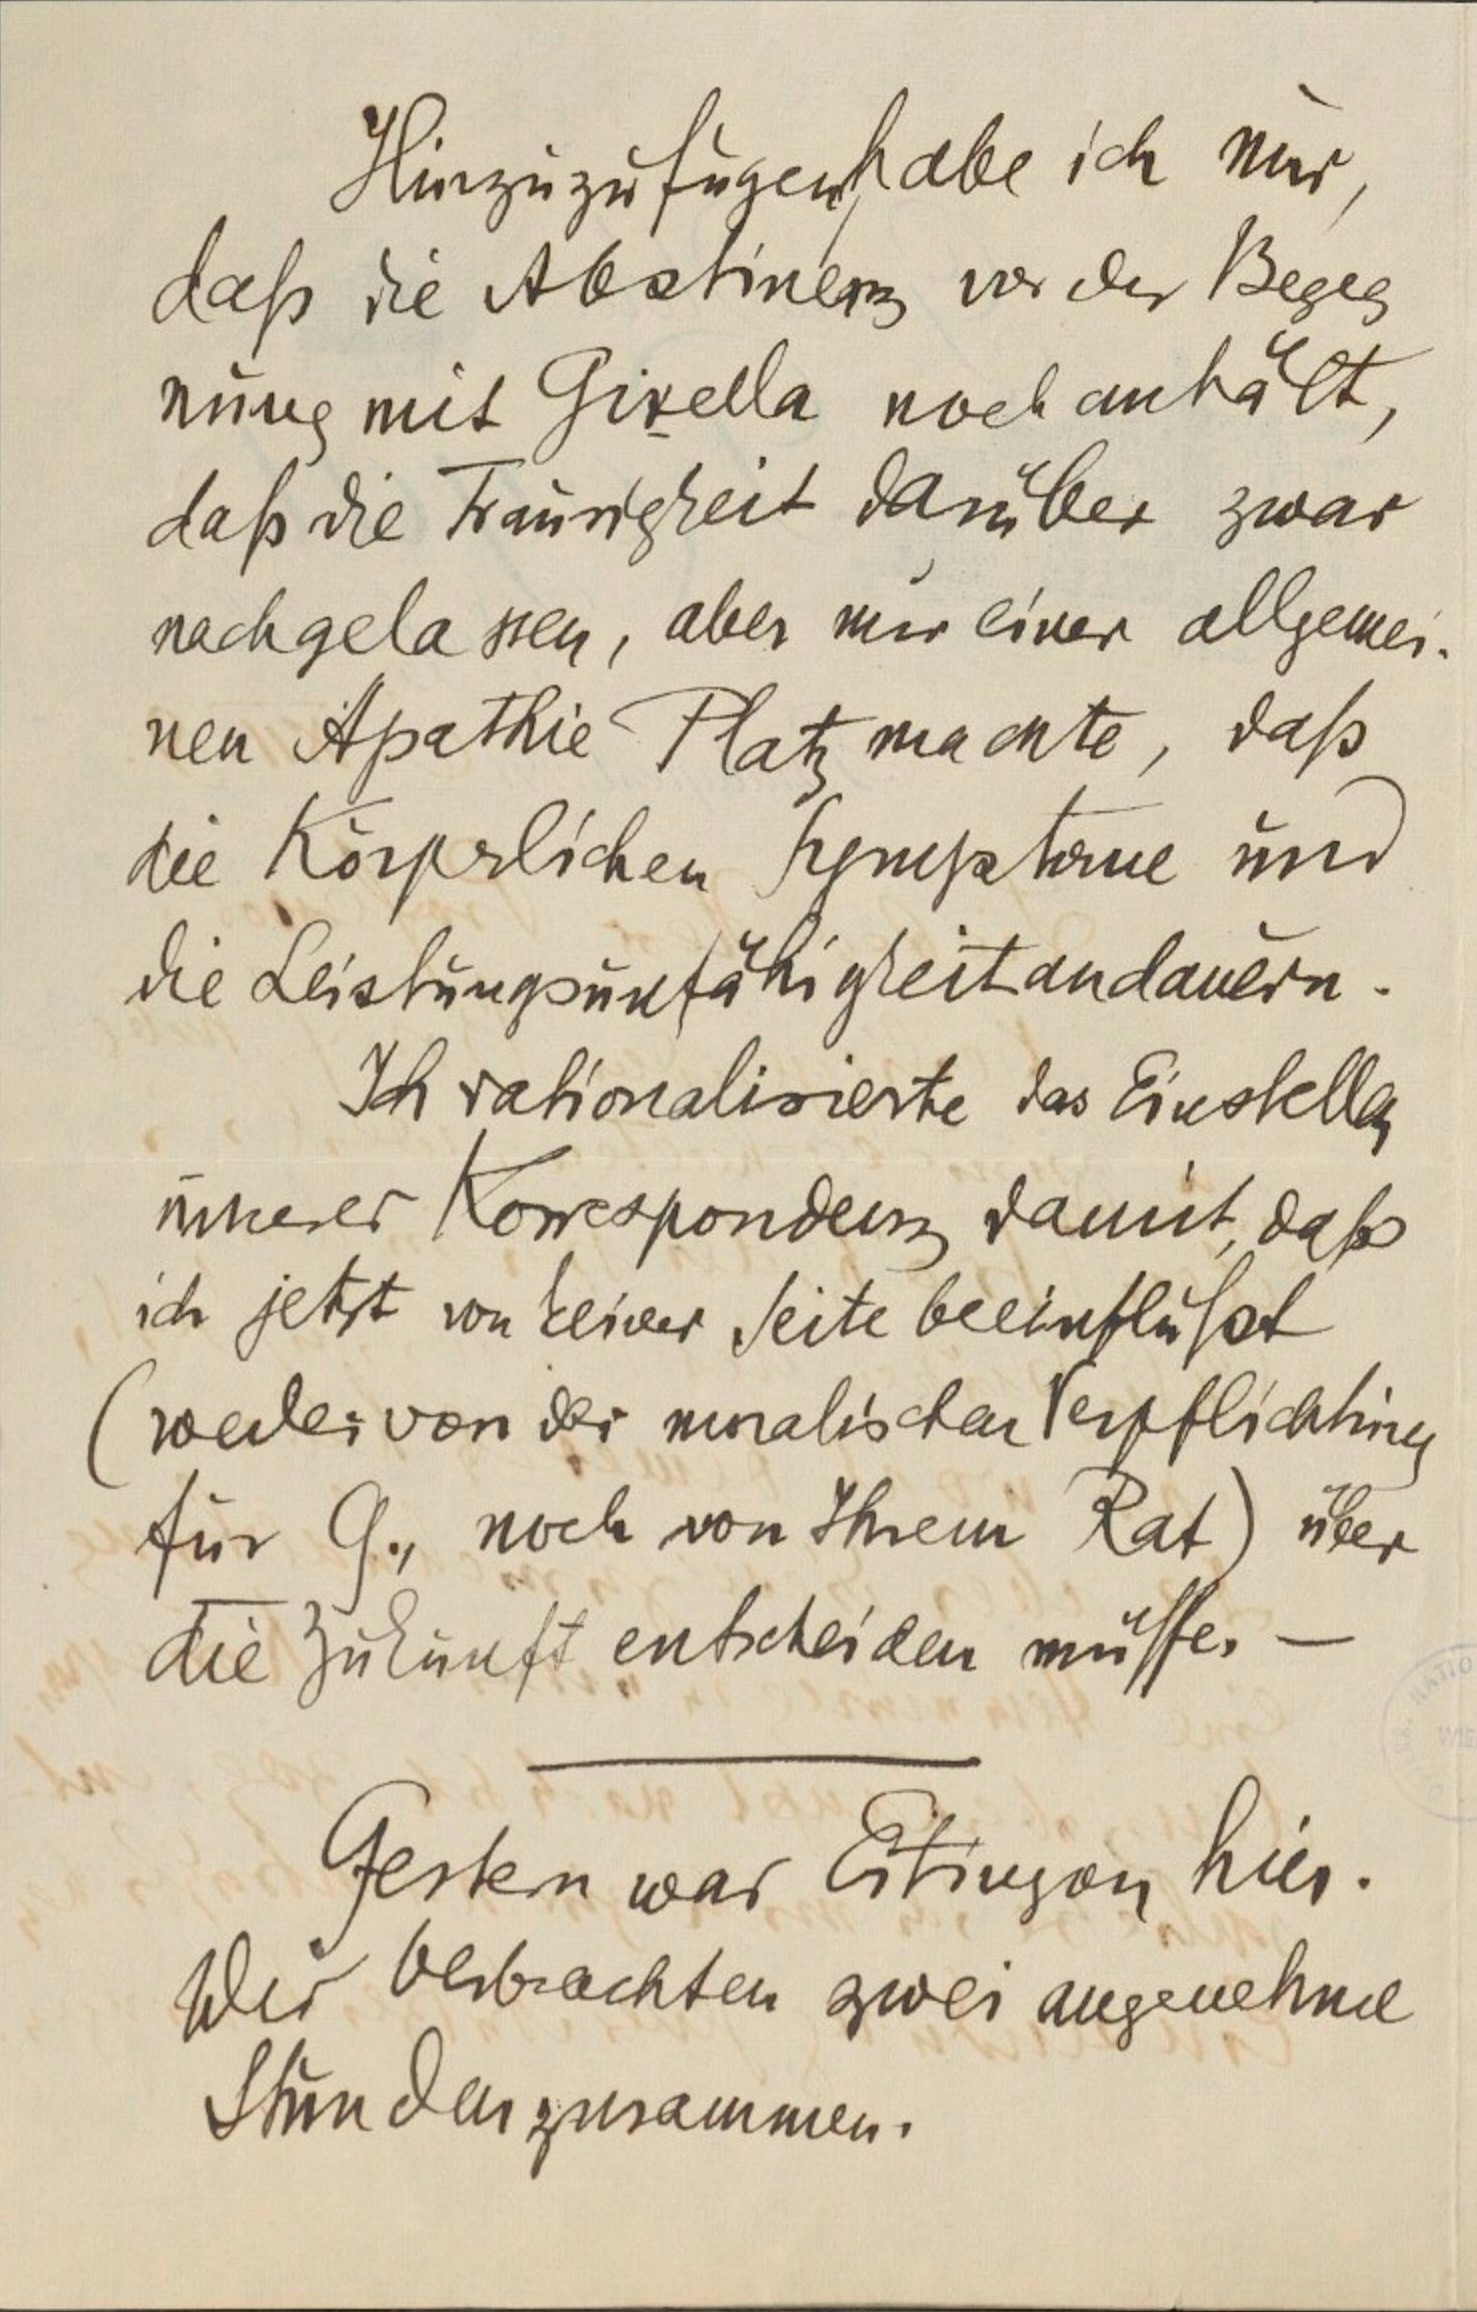 Hinzuzufügen habe ich nur,
daß die Abstinenz vor der Begeg
nung mit Gizella noch anhält,
daß die Traurigkeit darüber zwar
nachgelassen, aber nur einer allgemei-
nen Apathie Platz machte, daß
die Körperlichen Symptome und
die Leistungsunfähigkeit andauern.
Ich rationalisierte das Einstellen
unserer Korrespondenz damit, daß
ich jetzt von keiner Seite beeinflußt
(weder von der moralischen Verpflichtung
für G., noch von Ihrem Rat) über
die Zukunft entscheiden müsse. —
Gestern war Eitingon hier.
Wir verbrachten zwei angenehme
Stunden zusammen.